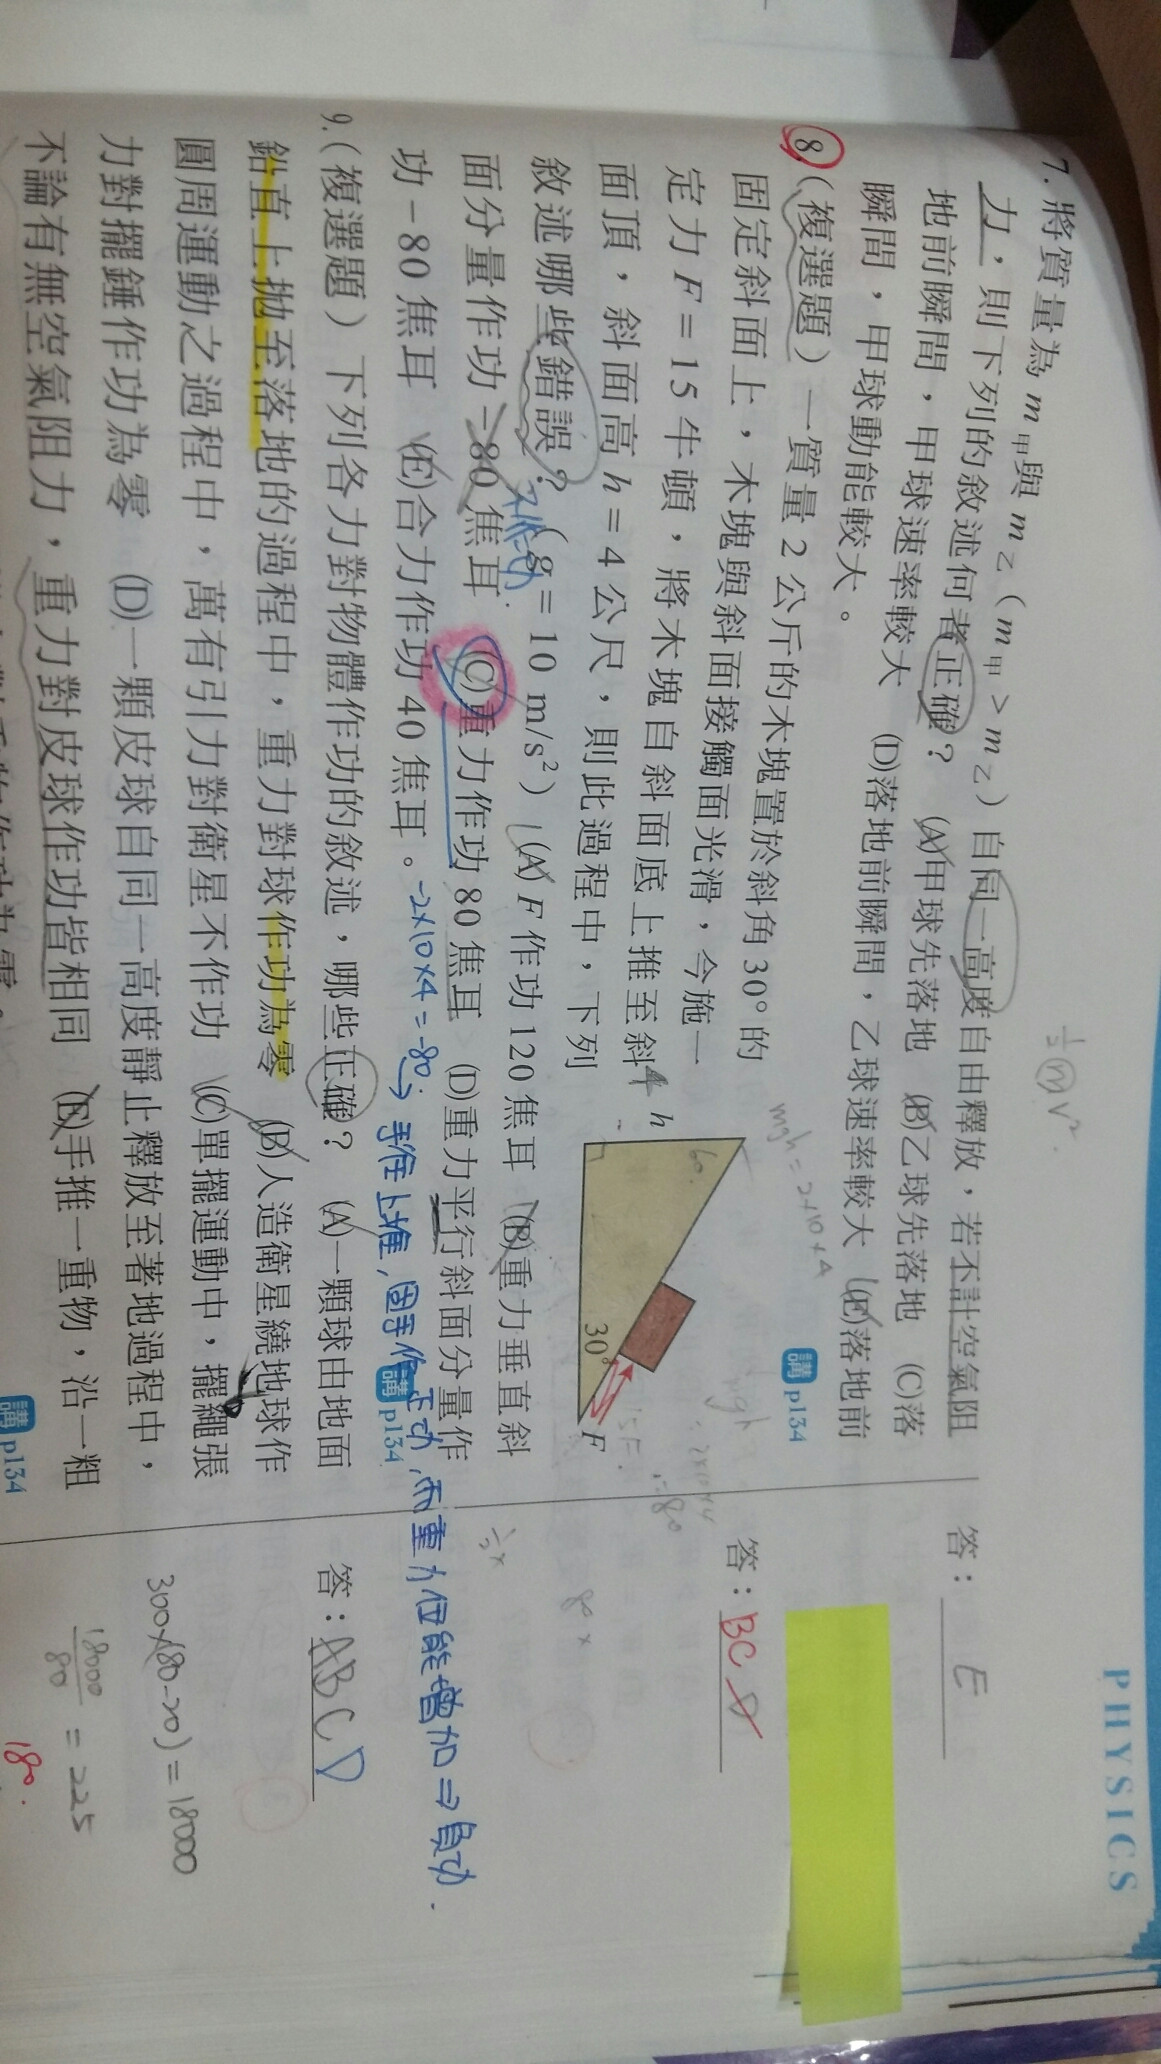 PHYSICS
½mv².
7. 將質量為 m甲與 m乙（m甲 > m乙）自同一高度自由釋放，若不計空氣阻
力，則下列的敘述何者正確？ (A)甲球先落地 (B)乙球先落地 (C)落
地前瞬間，甲球速率較大 (D)落地前瞬間，乙球速率較大 (E)落地前
瞬間，甲球動能較大。
講 p134
答：E
8. （複選題）一質量 2 公斤的木塊置於斜角 30° 的
固定斜面上，木塊與斜面接觸面光滑，今施一
定力 F = 15 牛頓，將木塊自斜面底上推至斜
面頂，斜面高 h = 4 公尺，則此過程中，下列
敘述哪些錯誤？（g = 10 m/s²） (A) F 作功 120 焦耳 (B)重力垂直斜
面分量作功 -80 焦耳 (C)重力作功 80 焦耳 (D)重力平行斜面分量作
功 -80 焦耳 (E)合力作功 40 焦耳。
講 p134
mgh = 2×10×4
4
h
60°
30°
F
不作功.
-2×10×4 = -80.
手往上推, 因手作正功, 而重力位能增加⇒負功.
答：BCD
80×
9. （複選題）下列各力對物體作功的敘述，哪些正確？ (A)一顆球由地面
鉛直上拋至落地的過程中，重力對球作功為零 (B)人造衛星繞地球作
圓周運動之過程中，萬有引力對衛星不作功 (C)單擺運動中，擺繩張
力對擺錘作功為零 (D)一顆皮球自同一高度靜止釋放至著地過程中，
不論有無空氣阻力，重力對皮球作功皆相同 (E)手推一重物，沿一粗
講 p134
答：ABCD
300×(80-20) = 18000
18000/80 = 225
180.